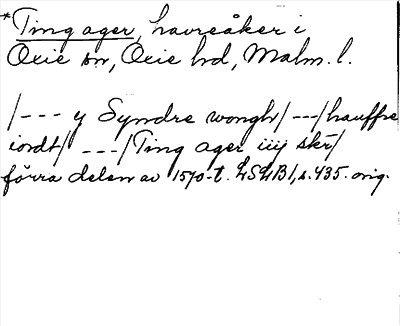 *Ting ager, havreåker i
Oxie sn, Oxie hd, Malm. l.
/--- y Syndre wongh/---/hauffre
iordt/ ---/Ting ager iiij skr/
förra delen av 1570-t. LSLB1, s. 435. orig.